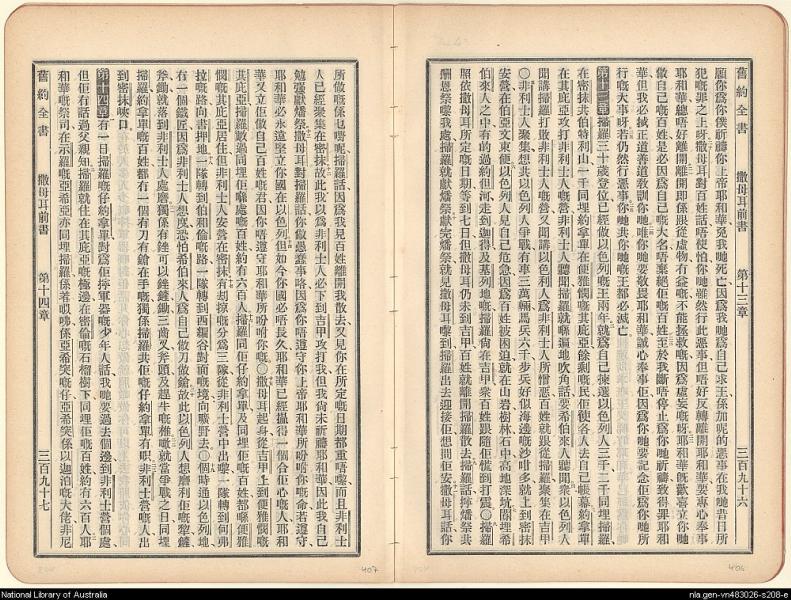 舊約全書 撒母耳前書 第十三章 三百九十六
願你為你僕祈禱你上帝耶和華免我哋死亡因為我哋為自己求王係加呢的惡事在我哋昔日所
犯嘅罪之上呀撒母耳對百姓話唔使怕你哋雖然行此惡事但唔好反轉離開耶和華要專心奉事
耶和華總唔好離開離開即係跟從虛物有益嘅不能拯救嘅因為虛妄嘅呀耶和華既歡喜立你哋
做自己嘅百姓是必因為自己嘅大名唔棄絕佢嘅百姓至於我斷唔停止為你哋祈禱致得罪耶和
華但我必以正道善道教訓你哋唯你哋要敬畏耶和華誠心奉事佢因為你哋要記念佢為你哋所
行嘅大事呀若仍然行惡事你哋共你哋嘅王都必滅亡
第十三章 掃羅三十歲登位已經做以色列嘅王兩年就為自己揀選以色列人三千二千同埋掃羅
在密抹共伯特利山一千同埋約拿單在便雅憫嘅其庇亞餘剩嘅民佢使各人去自己帳幕約拿單
在其庇亞攻打非利士人嘅營非利士人聽聞掃羅就喺遍地吹角話要希伯來人聽聞衆以色列人
聞講掃羅打敗非利士人嘅營又聞講以色列人為非利士人所憎惡百姓就跟從掃羅聚集在吉甲
○非利士人聚集想共以色列人爭戰有車三萬輛馬兵六千步兵好似海邊嘅沙咁多就上到密抹
安營在伯亞文東便以色列人見自己危急因為百姓被困迫就在山岩樹林石中高地深坑匿埋希
伯來人之中有的過約但河走到迦得及基列地嘅掃羅尚在吉甲衆百姓跟隨佢慌到打震○掃羅
照依撒母耳所定嘅日期等到七日但撒母耳仍未到吉甲百姓就離開掃羅散去掃羅話擰燔祭共
酬恩祭嚟我處掃羅就獻燔祭獻完燔祭就見撒母耳嚟到掃羅出去迎接佢想問佢安撒母耳話你
406
所做嘅係乜嘢呢掃羅話因為我見百姓離開我散去又見你在所定嘅日期都重唔嚟而且非利士
人已經聚集在密抹故此我以為非利士人必下到吉甲攻打我但我尚未祈禱耶和華因此我自己
勉強獻燔祭撒母耳對掃羅話你做愚蠢事咯因為你唔遵守你上帝耶和華所吩咐你嘅命若遵守
耶和華必永遠堅立你國在以色列但如今你國必唔長久耶和華已經搵得一個合佢心嘅人耶和
華又立佢做自己百姓嘅君因你唔遵守耶和華所吩咐你嘅○撒母耳起身從吉甲上到便雅憫嘅
其庇亞掃羅數過同埋佢喺處嘅百姓約有六百人掃羅同佢仔約拿單及同埋佢嘅百姓都喺便雅
憫嘅其庇亞居住但非利士人安營在密抹有刦掠嘅分為三隊從非利士營中出嚟一隊轉到何弗
拉嘅路向書押地一隊轉到伯和崙嘅路一隊轉到西羅谷對面嘅境向曠野去○個時通以色列地
有一個鐵匠因為非利士人想度恐怕希伯來人為自己做刀做鎗故此以色列人想磨利佢嘅犂鏟
斧鋤就落到非利士人處磨獨係有銼可以銼鏟鋤三齒叉斧頭及趕牛嘅椎嘅就當爭戰之日同埋
掃羅約拿單嘅百姓都有一個有刀有鎗在手嘅獨係掃羅共佢仔約拿單有呮非利士營嘅人出
到密抹峽口
第十四章 有一日掃羅嘅仔約拿單對為佢擰軍器嘅少年人話我哋要過去個邊到非利士營個處
但佢有話過父親知掃羅就住在其庇亞嘅極邊在密崙嘅石榴樹下同埋佢嘅百姓約有六百人耶
和華嘅祭司在示羅嘅亞希亞亦同埋掃羅係若呮咈係亞希突嘅仔亞希突係以迦泊嘅大佬非尼
舊約全書 撒母耳前書 第十四章 三百九十七
407
National Library of Australia
nla.gen-vn483026-s208-e